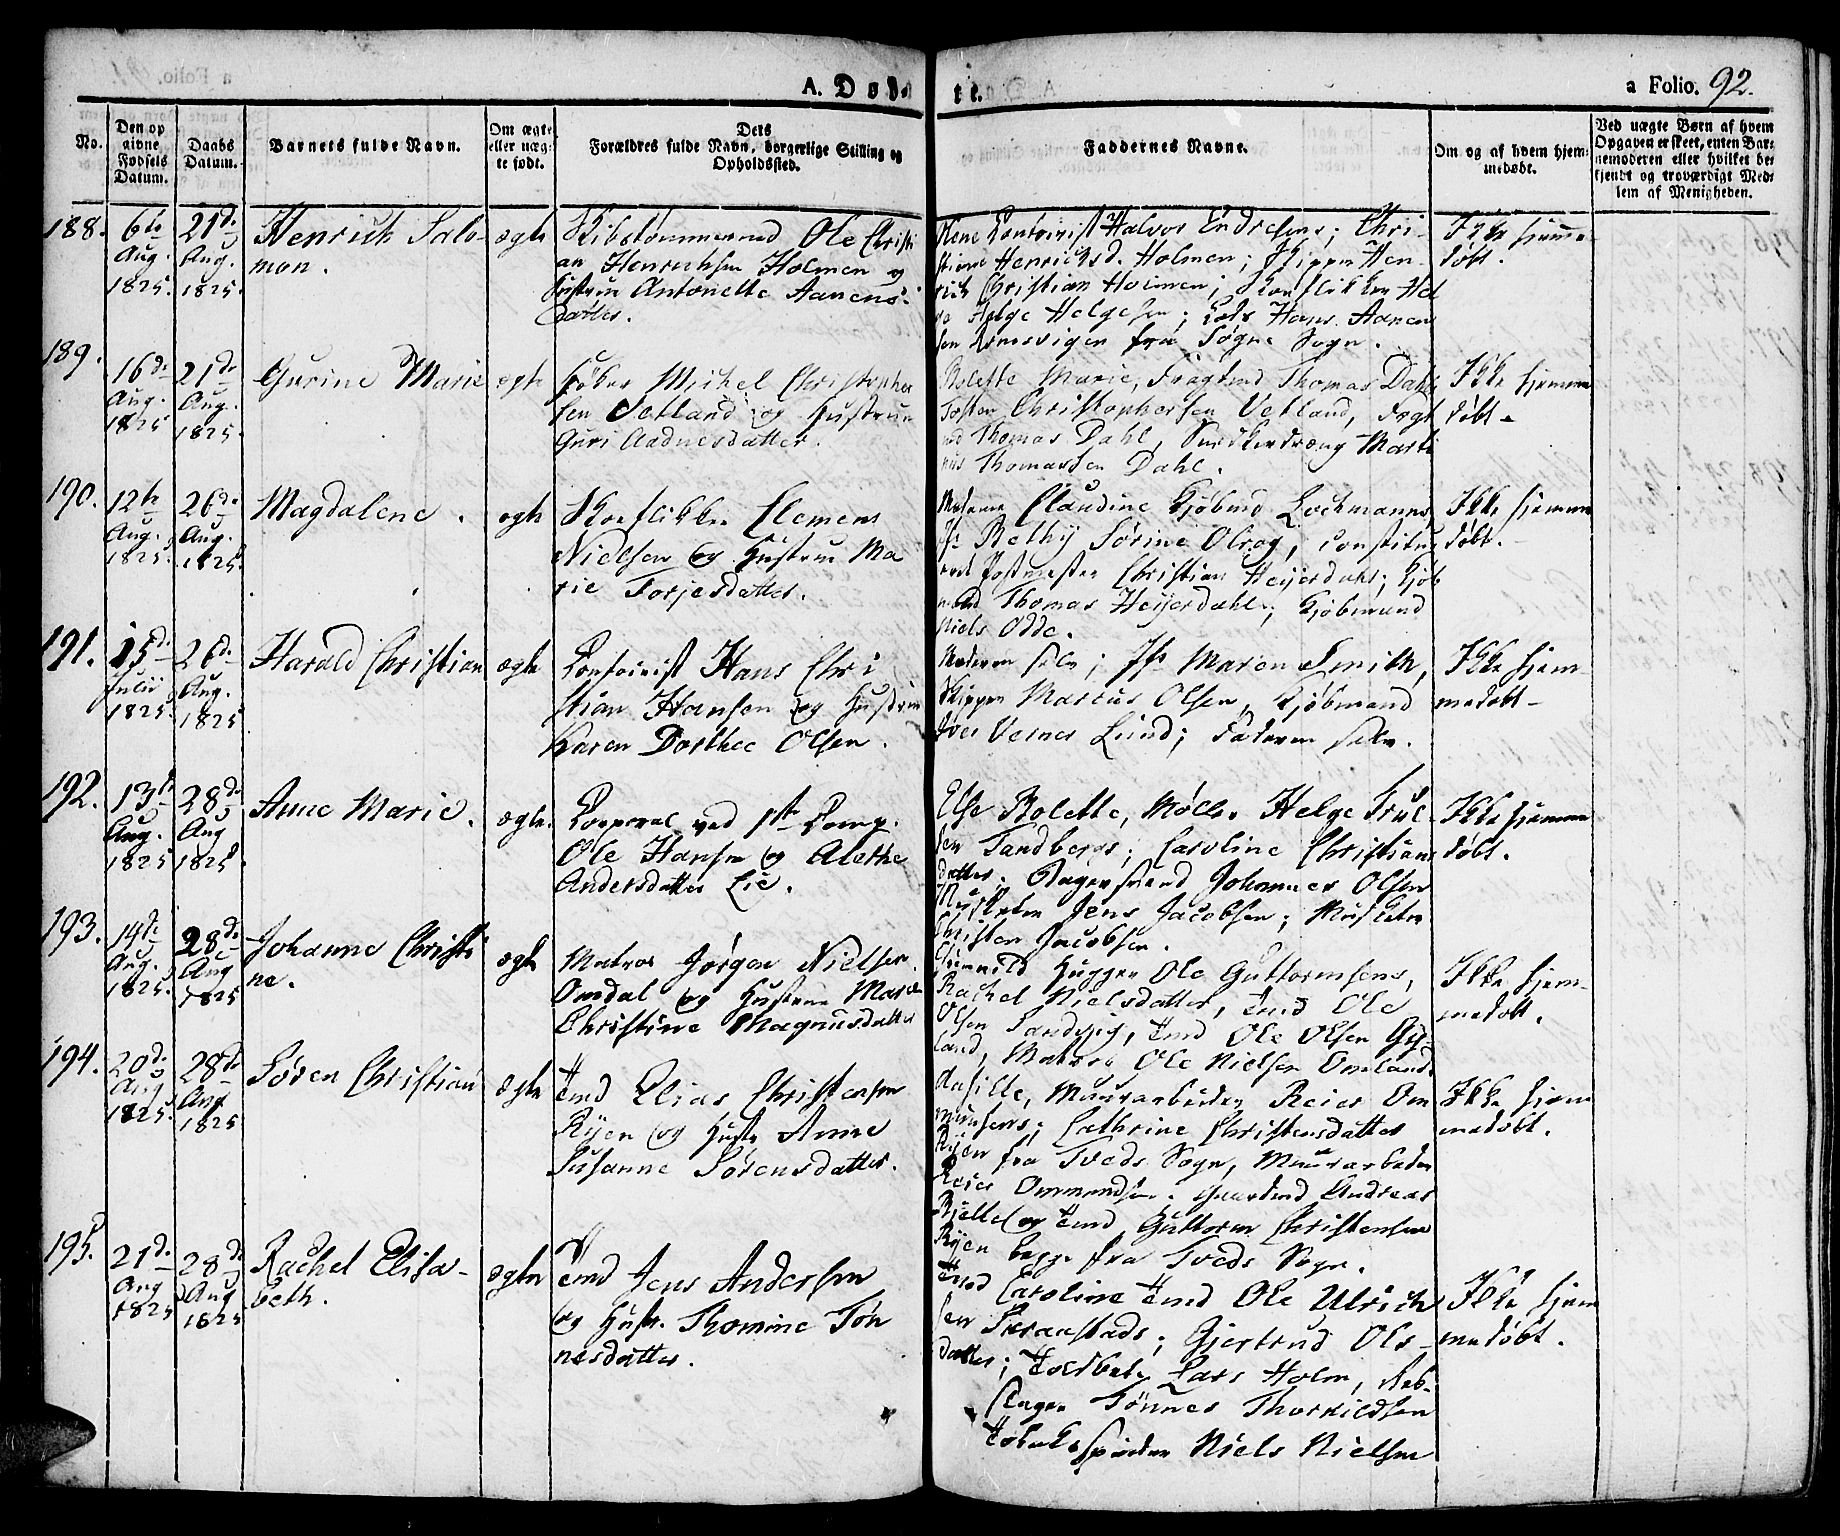 A. Døb-
te.
a Folio. 92.
No.
Den op
givne
Fødsels
Datum.
Daabs
Datum.
Barnets fulde Navn.
Om ægte
eller uæg-
te født.
Ders
Forældres fulde Navn, borgerlige Stilling og
Opholdssted.
Faddernes Navne.
Om og af hvem hjem-
medøbt.
Ved uægte Børn af hvem
Opgaven er skeet, enten Bar-
nemoderen eller hvilket be-
kjendt og troværdigt Med-
lem af Menigheden.
188.
6te
Aug.
1825.
21de
Aug.
1825.
Henrich Salo-
mon.
ægte
Skibstømmermd Ole Christi
an Henrichsen Holmen og
Hustrue Antonette Aanens-
datter.
Contoirist Halvor Endresens; Chri-
stiane Henrichsd. Holmen; Skipper Hen-
rich Christian Holmen; Skoeflikker Hel
ge Helgesen; Lods Hans Aanen
sen fra Søgne Sogn.
Ikke hjemme-
døbt.
189.
16de
Aug.
1825
21de
Aug.
1825.
Gurine Marie
ægte
Christopher
sen Vetland og Hustrue
Guri Aadnesdatter.
Bolette Marie, Fragtmd Thomas Dahls
Tosten Christophersen Vetland, Fragt
md Thomas Dahl, Snedkerdræng Marti
nus Thomassen Dahl.
Ikke hjemme
døbt-
190.
12te
Aug.
1825.
26de
Aug.
1825.
Magdalene.
ægte
Skoeflikker Clemens
Nielsen og Hustrue Ma
rie Torjesdatter.
Claudine Kjøbmd Lochmanns,
Jfr Bethy Sørine Olrog, constitu
eret Postmester Christian Heyerdahl; Kjøb
mand Thomas Heyerdahl; Kjøbmand
Niels Odde.
Ikke hjemme
døbt.-
191.
15de
Julii
1825.
26de
Aug.
1825
Harald Christian
ægte
Contoirist Hans Chri
stian Hansen og Hustrue
Karen Dorthee Olsen.
Moderen selv; Jfr Maren Smith,
Skipper Marcus Olsen, Kjøbmand
Iver Verner Lund; Faderen selv.
Ikke hjem-
medøbt-
192.
13de
Aug.
1825
28de
Aug
1825.
Anne Marie.
ægte.
Corporal ved 1ste Comp.
Ole Hansen og Alethe
Andersdatter Lie.
Else Bolette, Møller Helge Trul
sen Tandbergs; Caroline Christians
datter. Johannes Olsen
Jens Jacobsen; Musketer
Christen Jacobsen.
Ikke hjemme
døbt.
193.
14de
Aug.
1825.
28de
Aug
1825
Johanne Christi
ne.
ægte
Matros Jørgen Nielsen
Omdal og Hustrue Maren
Christine Magnusdatter
Gunnild Hugger Ole Guttormsens,
Rachel Nielsdatter, Tmd Ole
Olsen Sandvig, Tmd Ole Olsen Gys-
land, Matros Ole Nielsen Omland.
Ikke hjem-
medøbt.
194.
20de
Aug
1825.
28de
Aug
1825
Søren Christian
ægte
Tmd Elias Christensen
Ryen og Hustr Anne
Susanne Sørensdatter.
Muurarbeider Reier Om
munsens; Cathrine Christensdatter
Ryen fra Tveds Sogn, Muurarbeider
Reier Ommundsen. Gaardmd Andreas
Kjelle og Tmd Guttorm Christensen
Ryen begge fra Tveds Sogn.
Ikke hjem
medøbt.
195.
21de
Aug
1825
28de
Aug
1825
Rachel Elisa-
beth.
ægte
Tmd Jens Andersen
og Hustr. Thomine Tøn
nesdatter.
Caroline Tmd Ole Ulrich
sen Straastads; Gjertrud Ols-
datter; Lars Holm,
Tønnes Thorkildsen
Tobakspinder Niels Nielsen
Ikke hjem
medøbt.